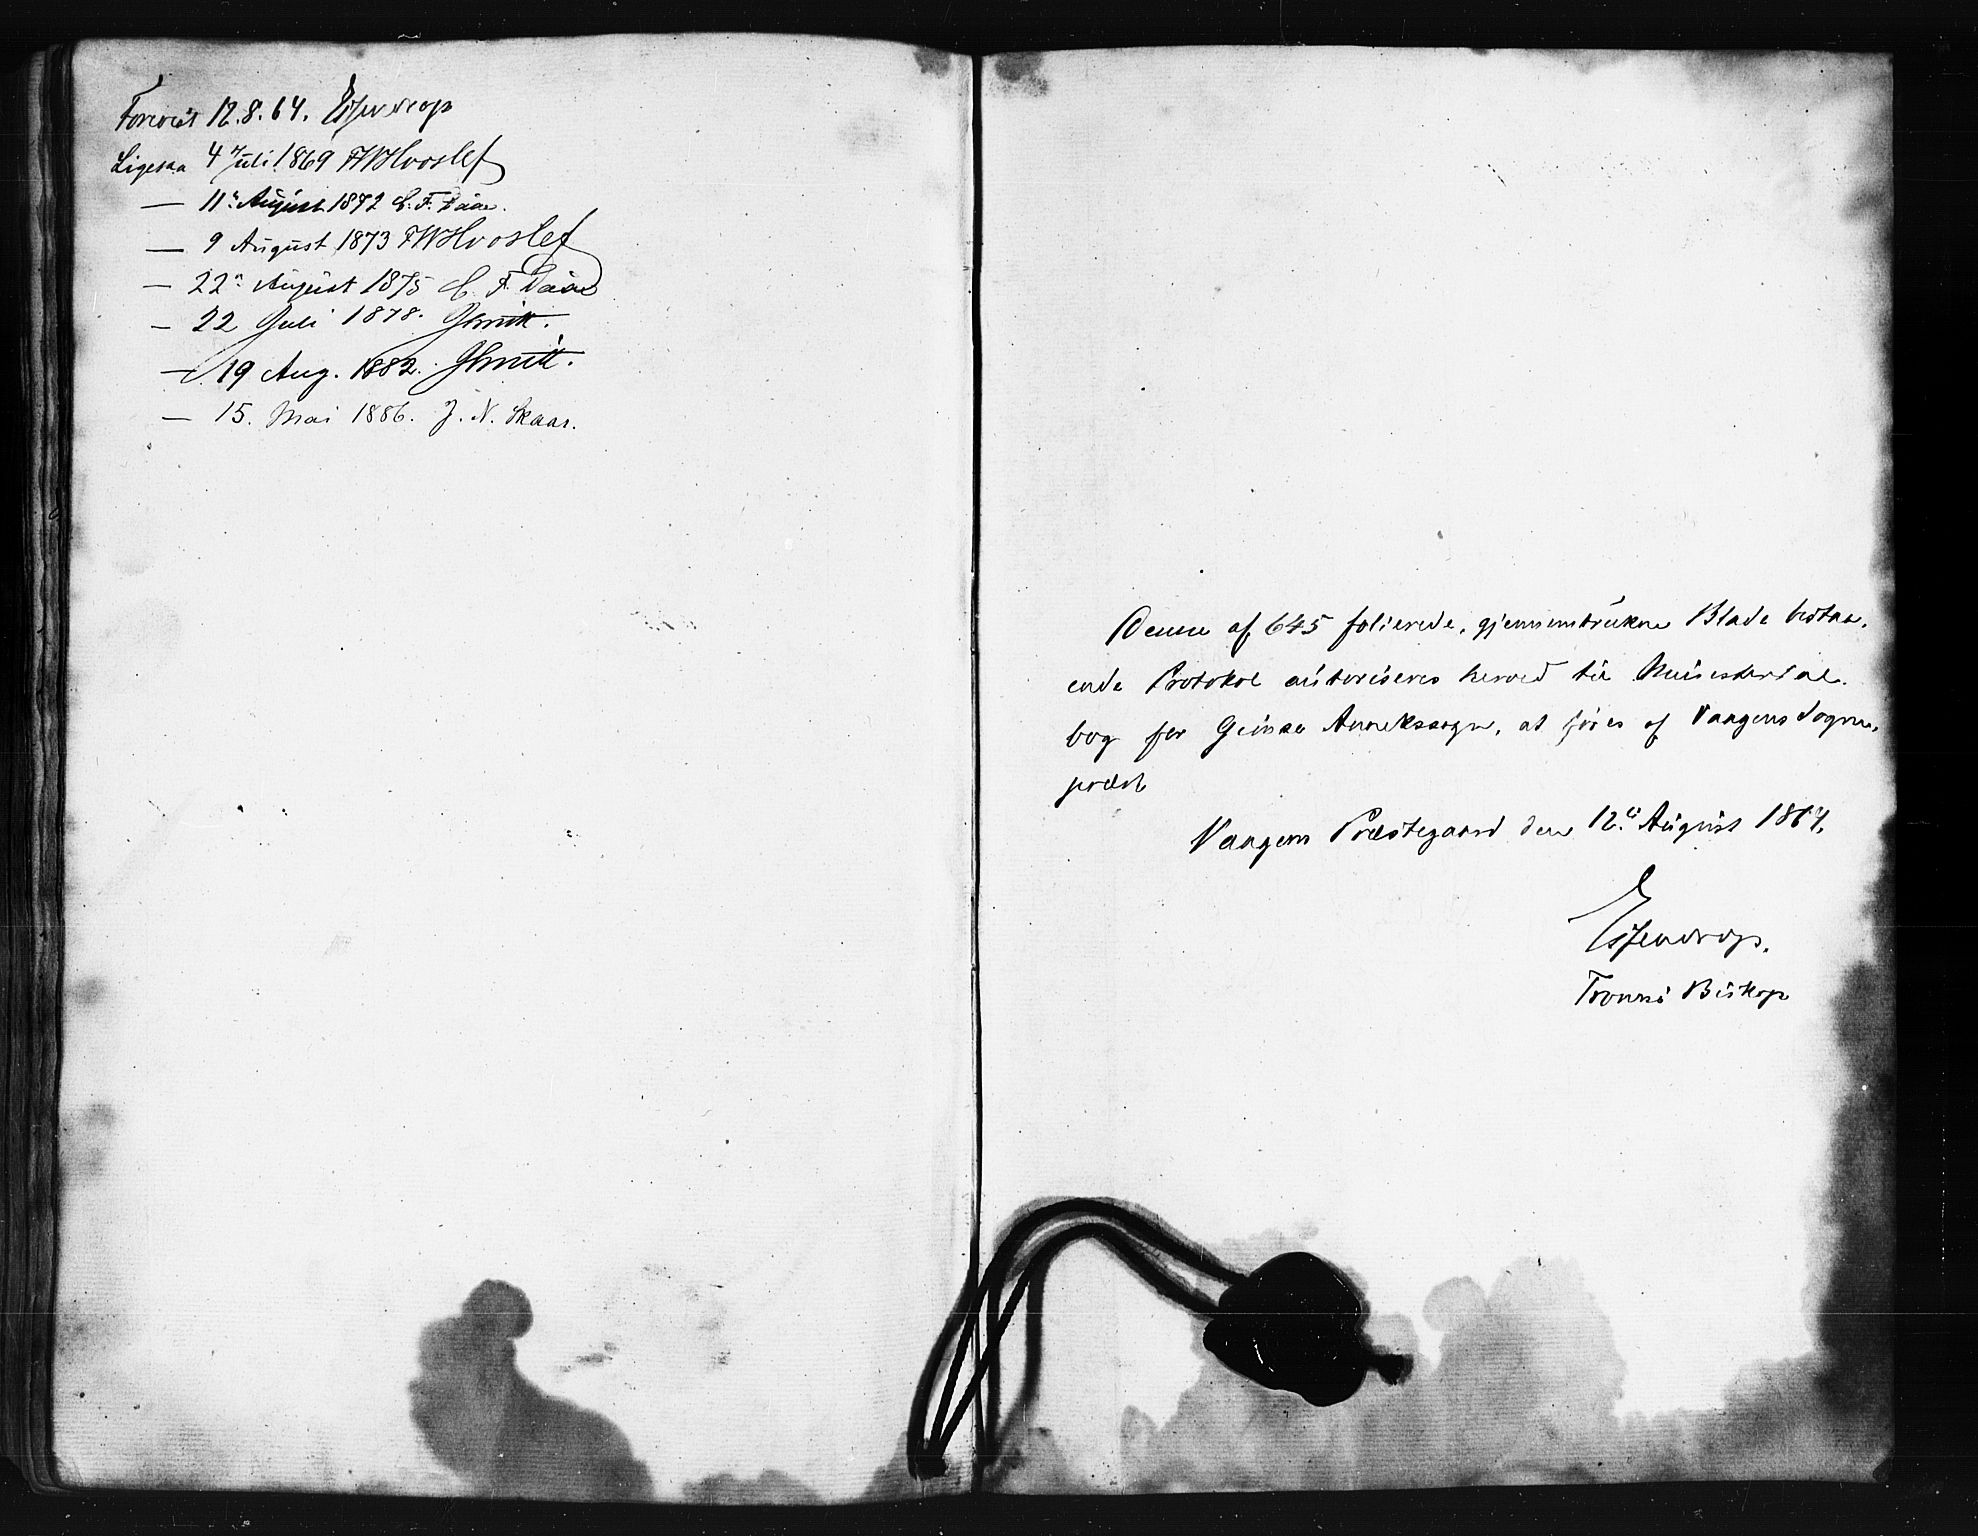 Forevist 12.8.64. Essendrop
Ligesaa 4 Juli 1869 FWHvoslef
— 11te August 1872 C. F. Daae.
— 9 August 1873 FWHvoslef
— 22n August 1875 C. F. Daae
— 22 Juli 1878. JSmitt.
— 19 Aug. 1882. JSmitt.
— 15. Mai 1886. J. N. Skaar.
Denne af 645 folierede, gjennemtrukne Blade bestaa-
ende Protokol autoriseres herved til Ministerial-
bog for Gimsø Annekssogn, at føres af Vaagens Sogne-
præst
Vaagens Præstegaard den 12te August 1864.
Essendrop.
Tromsø Biskop